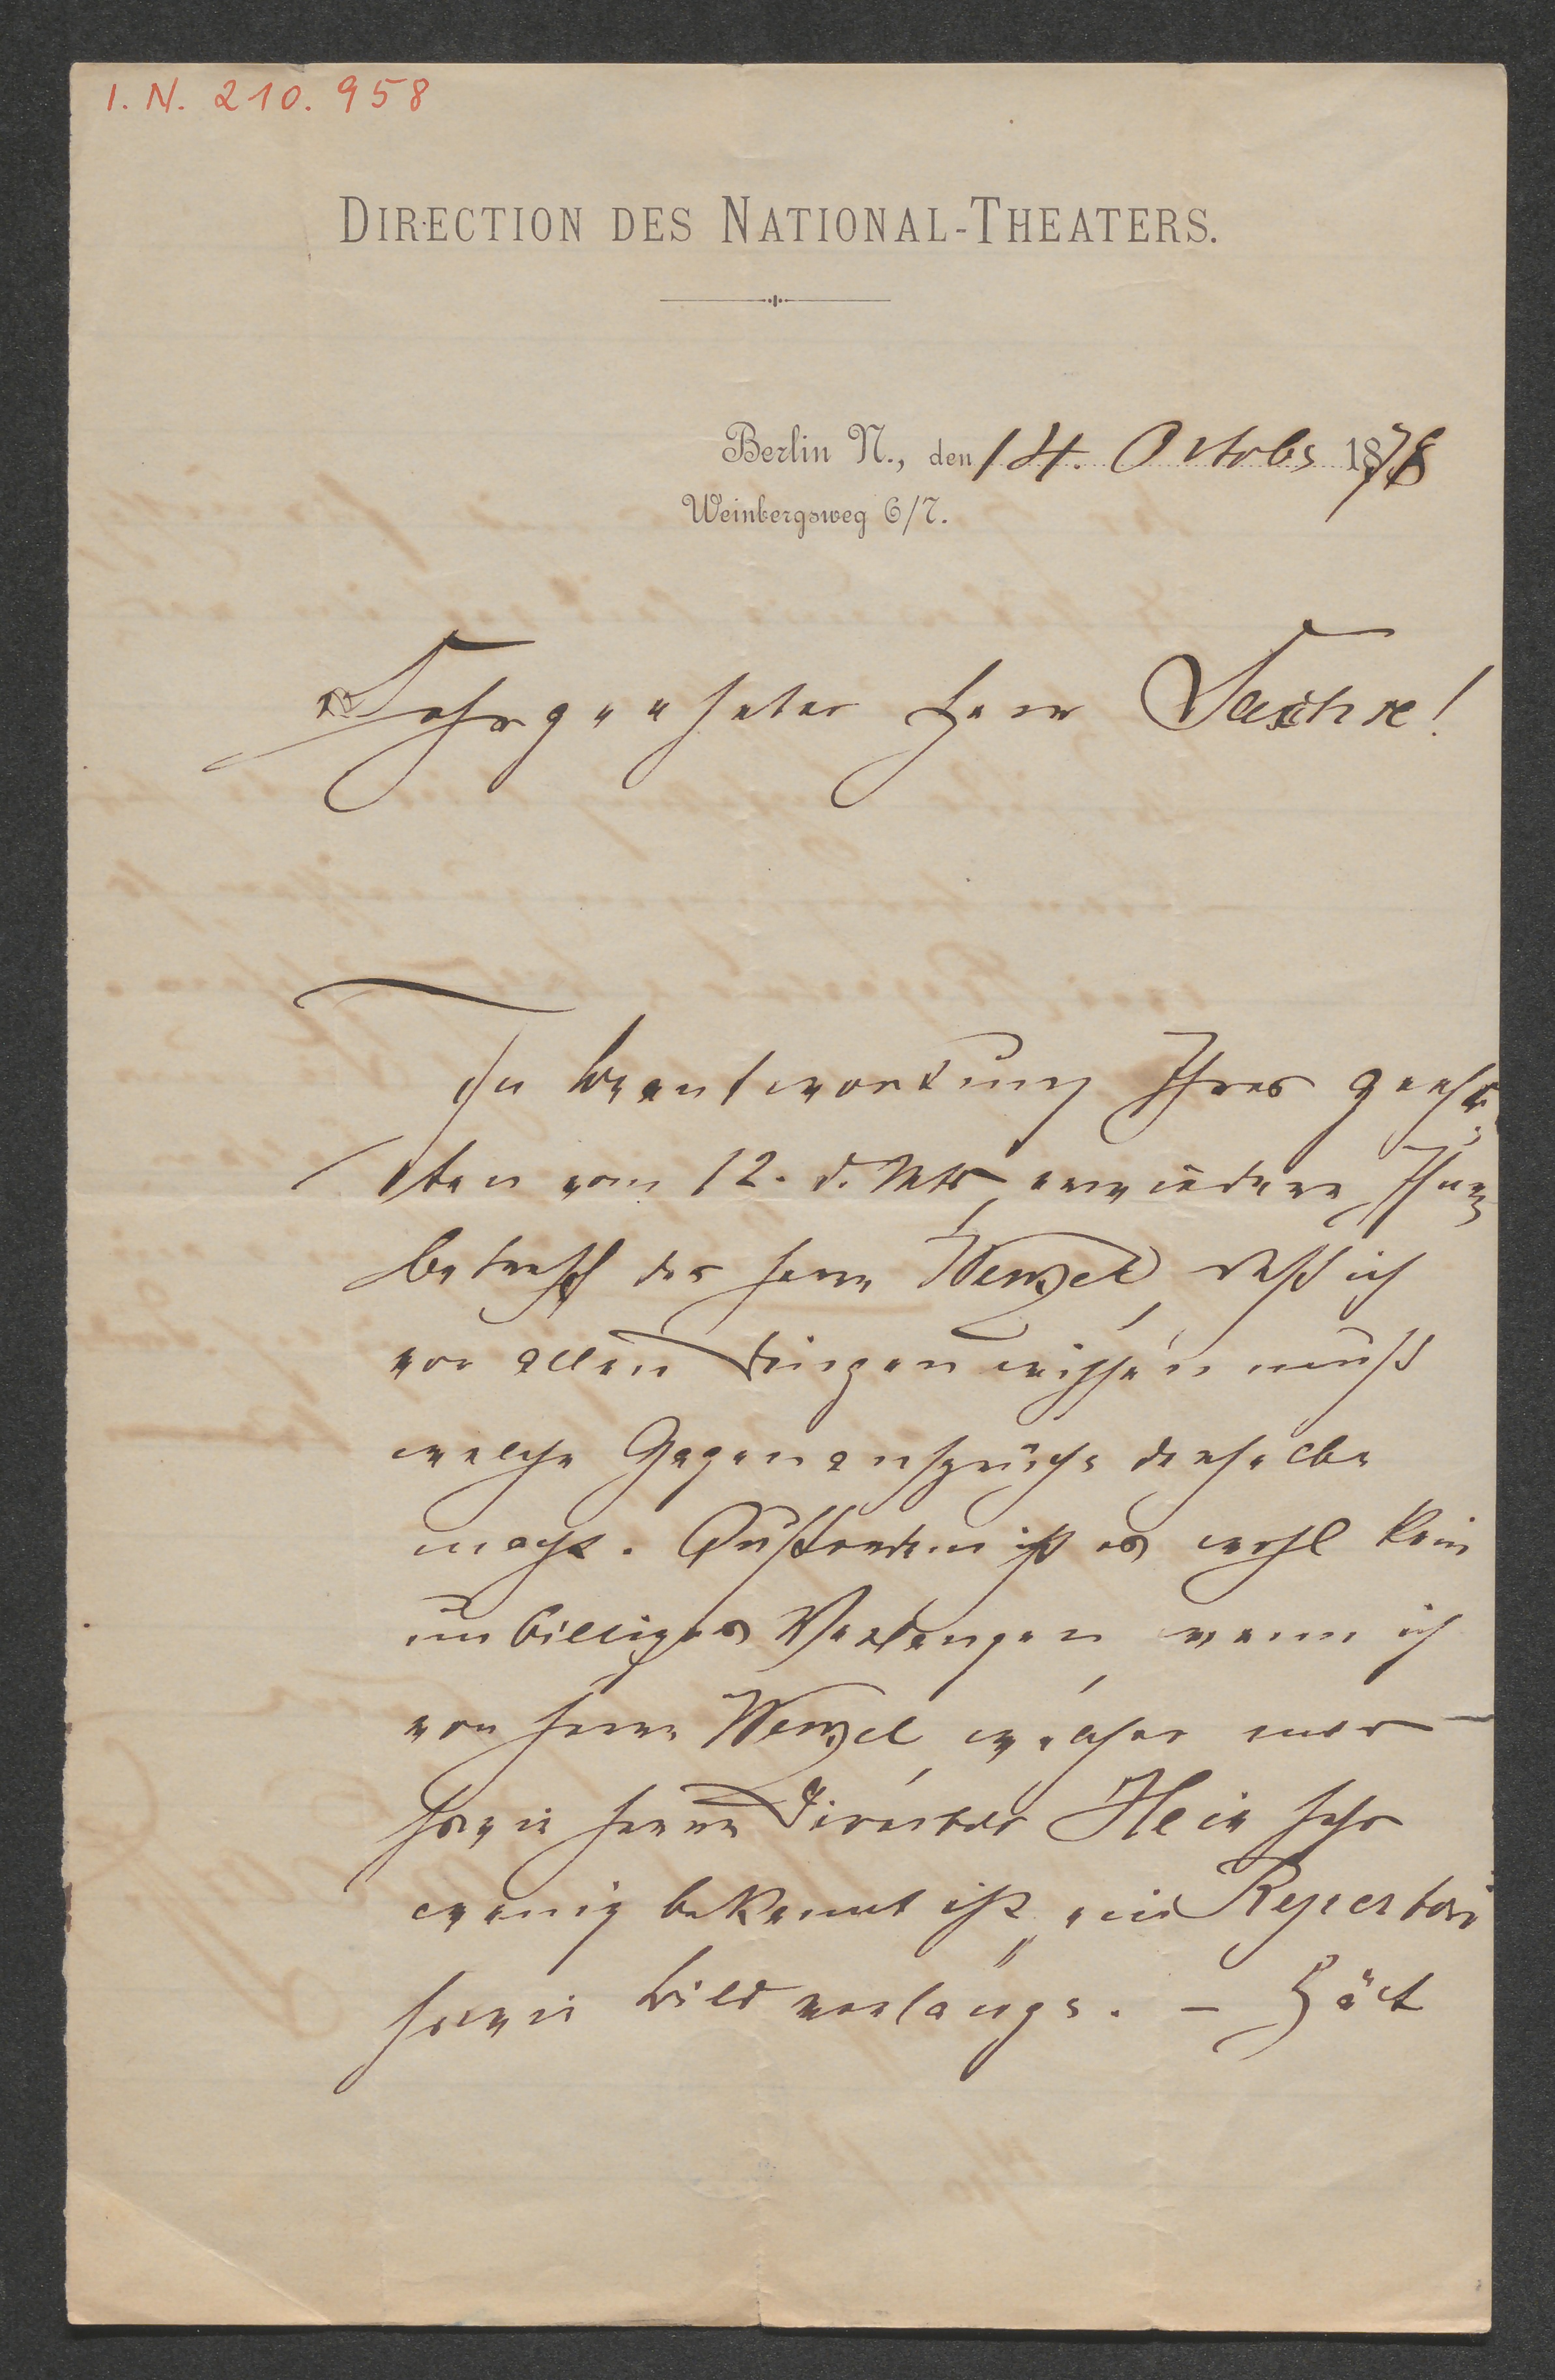 I. N. 210.958
DIRECTION DES NATIONAL-THEATERS.
Berlin N., den 14. Octobr 1878
Weinbergsweg 6/7.
Sehrgeehrter Herr Sachse!
In Beantwortung Ihres geehr-
ten vom 12. d. Mts, erwiedere Ihnen
betreff des Herrn Wenzel, daß ich
vor allen Dingen wissen muß
welche Gegenansprüche derselbe
macht. Außerdem ist es wohl kein
unbilliges Verlangen, wenn ich
von Herrn Wenzel, welcher mir
sowie Herrn Director Hein sehr
wenig bekannt ist, ein Repertoir
sowie Bild verlange. – Hält